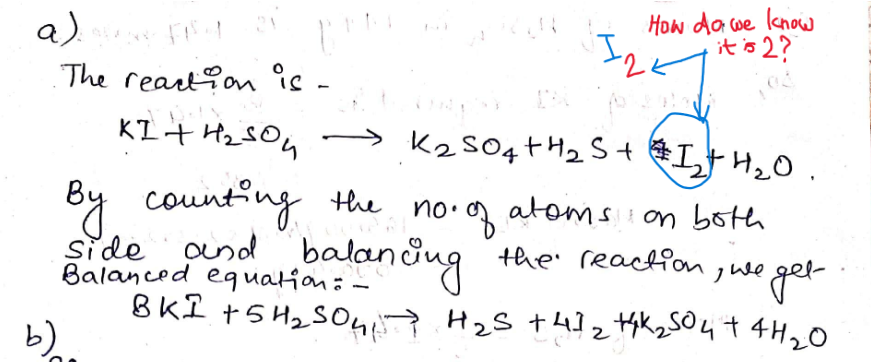 a)
How do we know
it is 2?
I2
The reaction is -
KI + H2SO4 → K2SO4 + H2S + I2 + H2O.
By counting the no. of atoms on both
side and balancing the reaction, we get
Balanced equation: -
8KI + 5H2SO4 → H2S + 4I2 + 4K2SO4 + 4H2O
b)